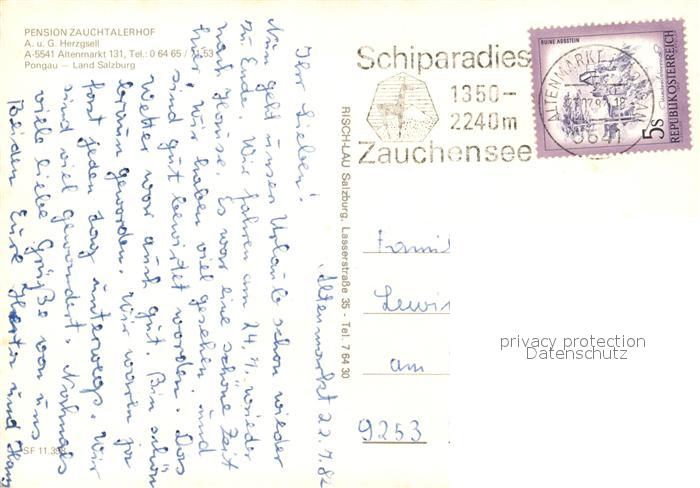 PENSION ZAUCHTALERHOF
A. u. G. Herzgsell
A-5541 Altenmarkt 131, Tel.: 0 64 65 / 71 53
Pongau — Land Salzburg
Altenmarkt 22.7.82
Ihr Lieben!
Nun geht unser Urlaub schon wieder
zu Ende. Wir fahren am 24.7. wieder
nach Hause. Es war eine schöne Zeit
hier. Wir haben viel gesehen und
sind gut bewirtet worden. Das
Wetter war auch gut. Bin schön
braun geworden. Wir waren ja
fast jeden Tag unterwegs. Wir
sind viel gewandert. Nochmals
viele liebe Grüße von uns
Beiden Eure Herta und Hans
SF 11.398
RISCH-LAU Salzburg, Lasserstraße 35 - Tel. 7 64 30
Schiparadies
1350-
2240m
Zauchensee
RUINE AGGSTEIN
5S
REPUBLIK ÖSTERREICH
ALTENMARKT
5541
Famil
Lewi
am
9253
privacy protection
Datenschutz